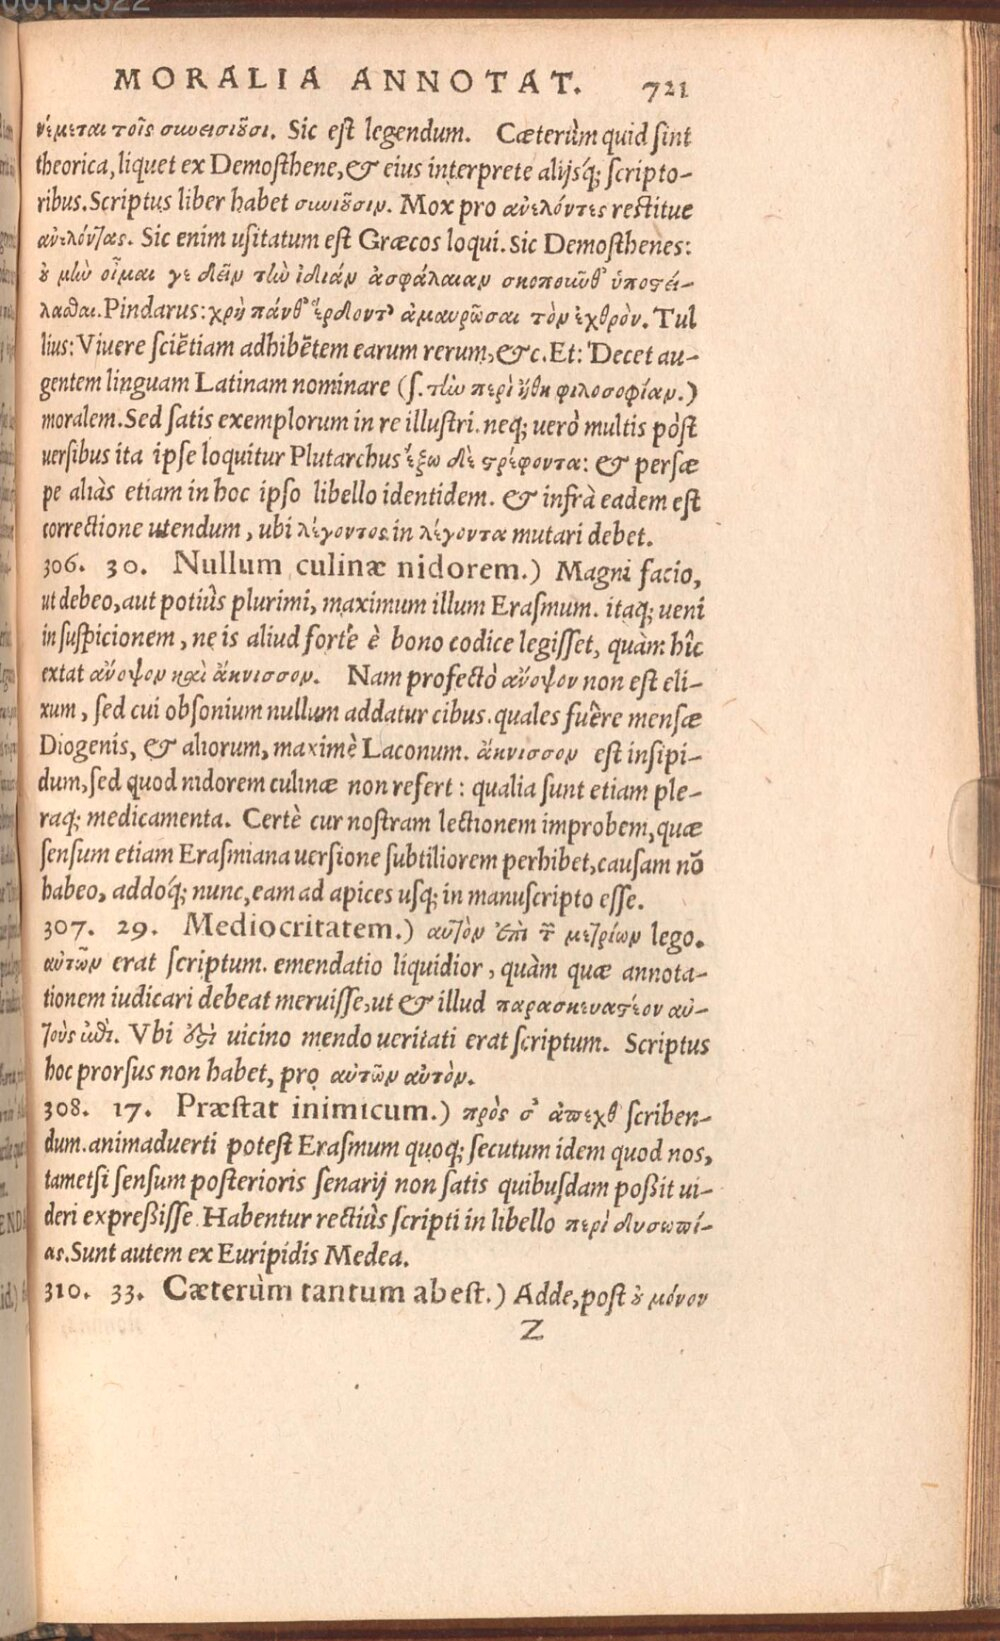 MORALIA ANNOTAT. 721
νέμεται τοῖς συνεισιοῦσι. Sic est legendum. Cæterùm quid sint
theorica, liquet ex Demosthene, & eius interprete alijsq́; scripto-
ribus. Scriptus liber habet συνιοῦσιν. Mox pro ἀνελόντες restitue
ἀνελόντας. Sic enim usitatum est Græcos loqui. Sic Demosthenes:
οὐ μὴν οἶμαι γε δεῖν τὴν ἰδιάν ἀσφάλειαν σκοποῦνθ' ὑποστεί-
λασθαι. Pindarus: χρὴ πάνθ' ἔρδοντ' ἀμαυρῶσαι τὸν ἐχθρὸν. Tul
lius: Viuere sciētiam adhibētem earum rerum, &c. Et: Decet au-
gentem linguam Latinam nominare (s. τὴν περὶ ἤθη φιλοσοφίαν.)
moralem. Sed satis exemplorum in re illustri. neq; uerò multis pòst
uersibus ita ipse loquitur Plutarchus ἔξω δὲ τρέφοντα: & persæ
pe aliàs etiam in hoc ipso libello identidem. & infrà eadem est
correctione utendum, ubi λέγοντος in λέγοντα mutari debet.
306. 30. Nullum culinæ nidorem.) Magni facio,
ut debeo, aut potiùs plurimi, maximum illum Erasmum. itaq; ueni
in suspicionem, ne is aliud forte è bono codice legisset, quàm hîc
extat ἄνοψον καὶ ἄκνισσον. Nam profectò ἄνοψον non est eli-
xum, sed cui obsonium nullum addatur cibus. quales fuêre mensæ
Diogenis, & aliorum, maximè Laconum. ἄκνισσον est insipi-
dum, sed quod nidorem culinæ non refert: qualia sunt etiam ple-
raq; medicamenta. Certè cur nostram lectionem improbem, quæ
sensum etiam Erasmiana uersione subtiliorem perhibet, causam nō
habeo, addoq́; nunc, eam ad apices usq; in manuscripto esse.
307. 29. Mediocritatem.) αὐτὸν ἐπὶ τ μετρίων lego.
αὐτῶν erat scriptum. emendatio liquidior, quàm quæ annota-
tionem iudicari debeat meruisse, ut & illud παρασκευαστέον αὐ-
τοὺς ὅθι. Vbi ὅτι uicino mendo ueritati erat scriptum. Scriptus
hoc prorsus non habet, pro αὐτῶν αὐτὸν.
308. 17. Præstat inimicum.) πρὸς σ' ἀπεχθ scriben-
dum. animaduerti potest Erasmum quoq; secutum idem quod nos,
tametsi sensum posterioris senarij non satis quibusdam poßit ui-
deri expreßisse. Habentur rectiùs scripti in libello περὶ δυσωπί-
ας. Sunt autem ex Euripidis Medea.
310. 33. Cæterùm tantum abest.) Adde, post οὐ μόνον
Z